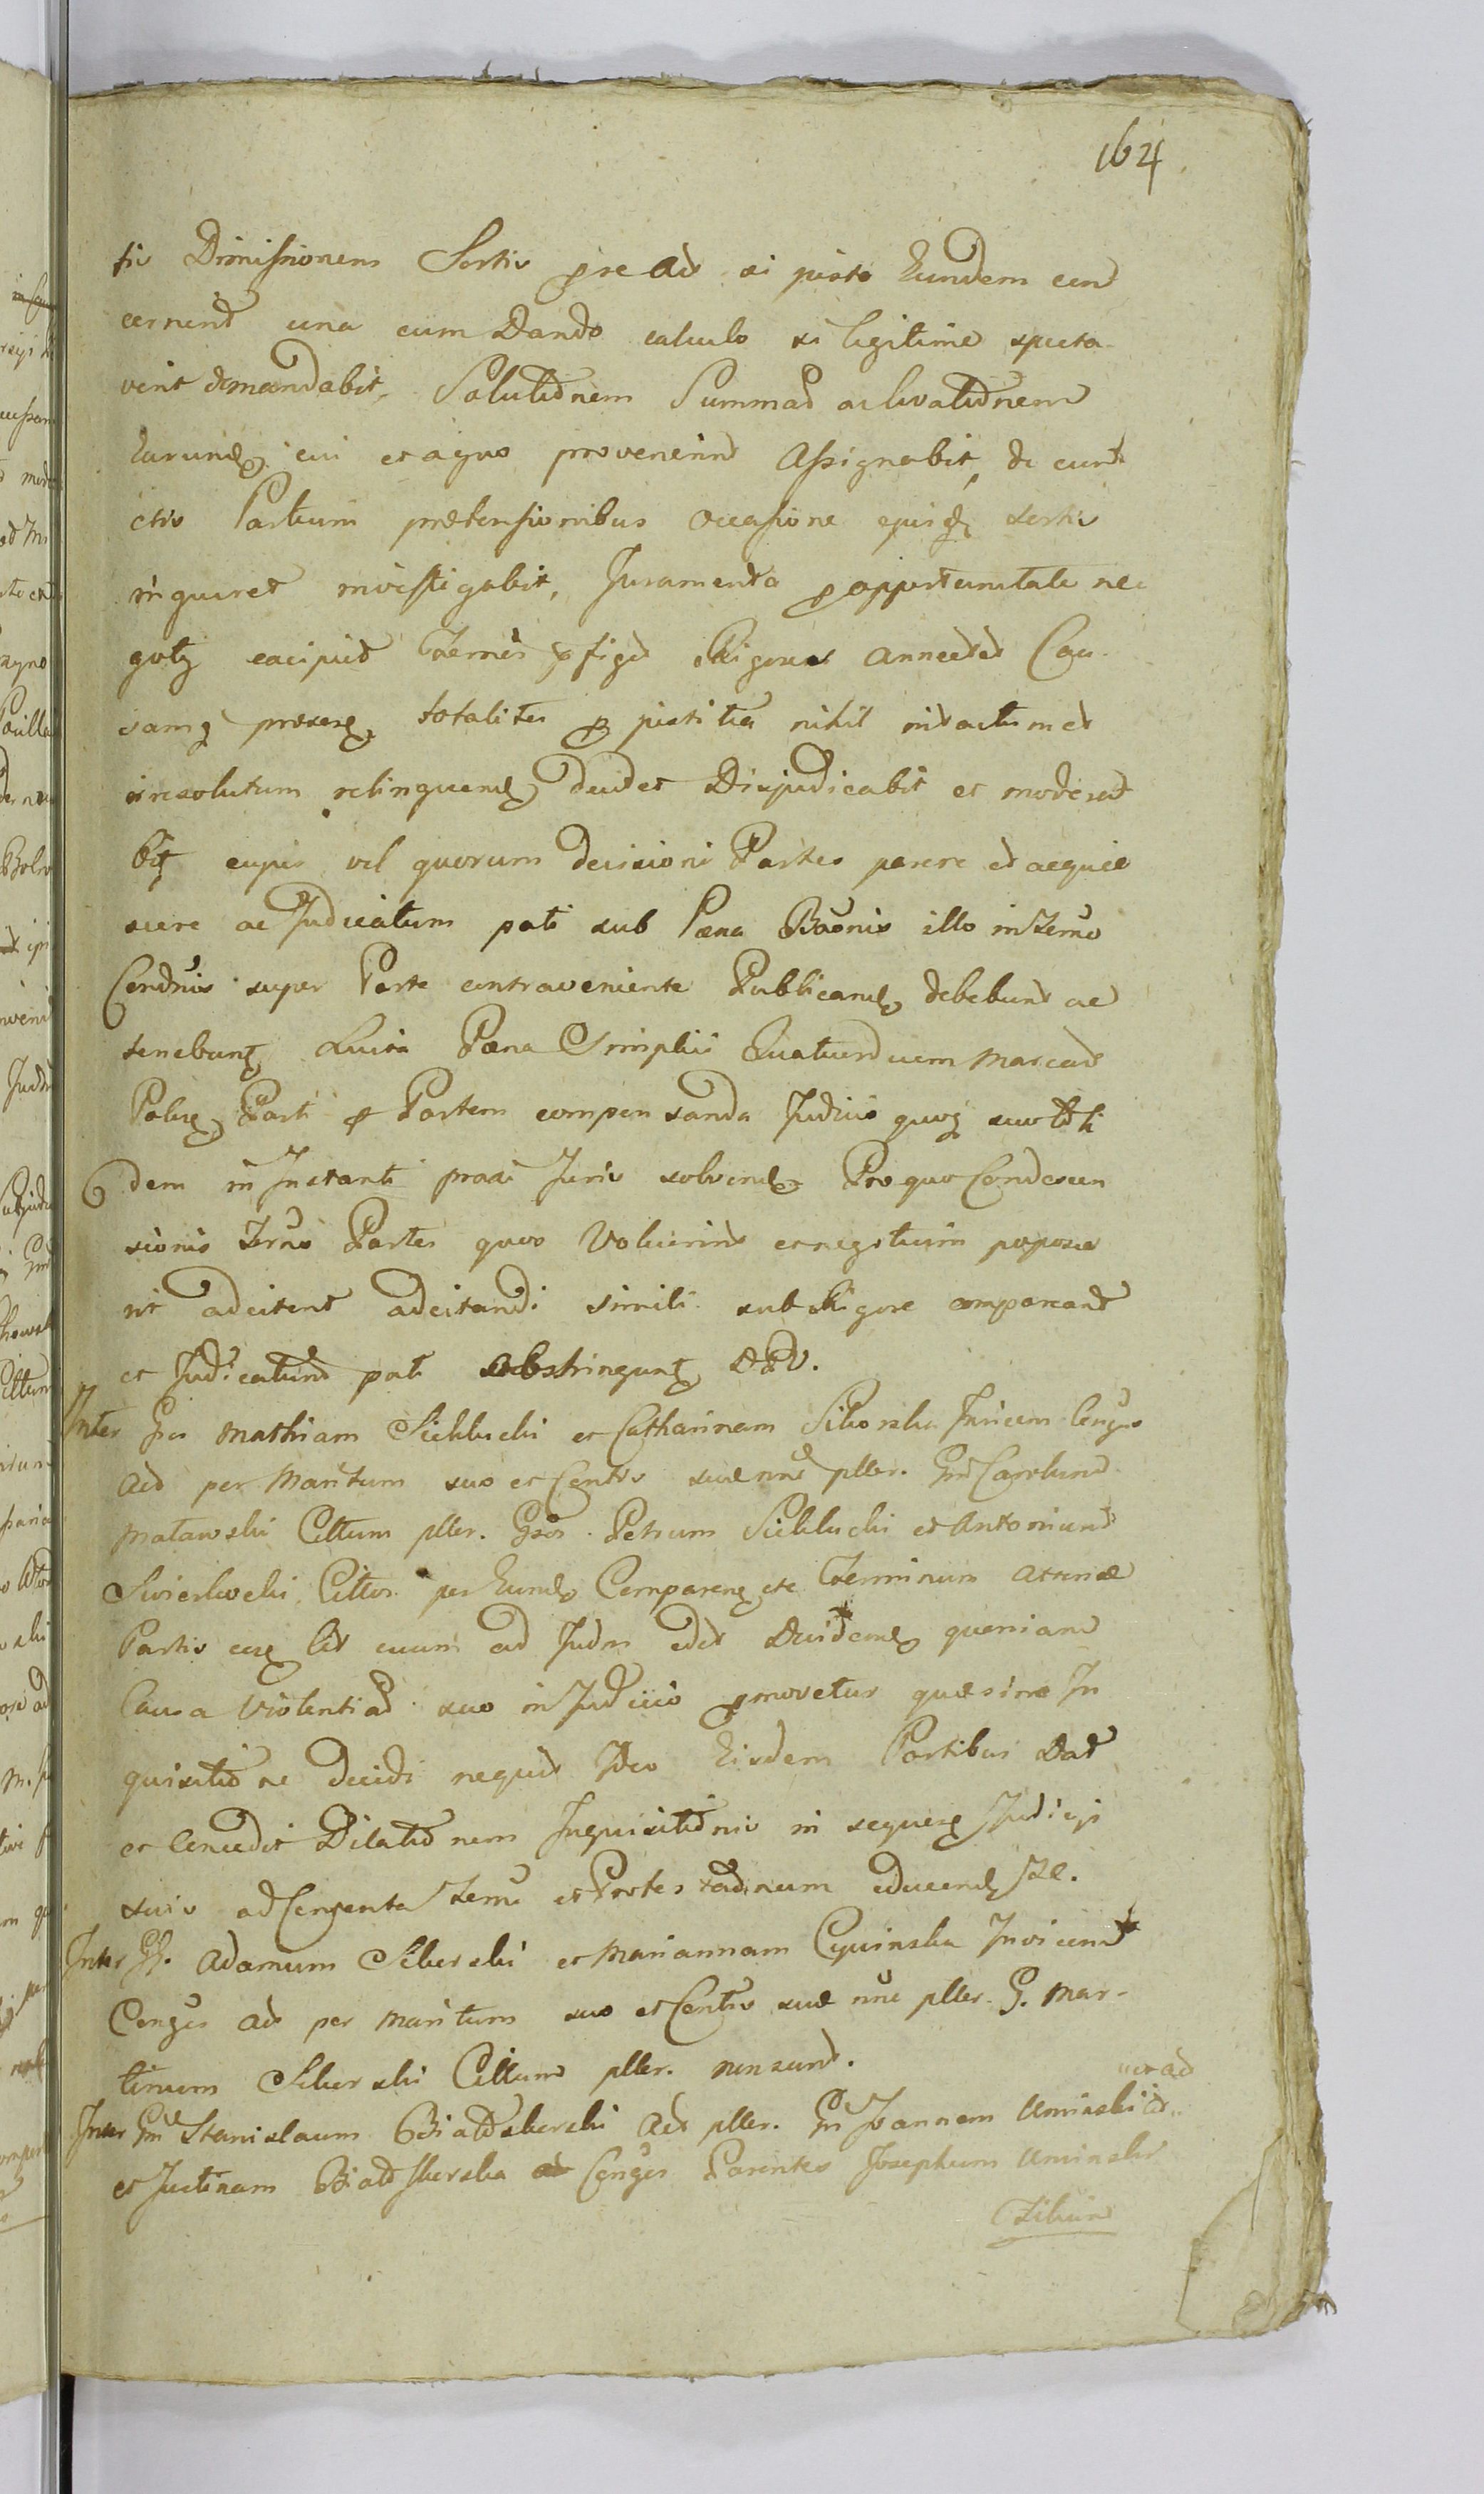 164
tis Dimissionem Sortis prae Ad si justo Eundem con
cernent una cum Dando calculo si legitime specta
verit demandabit, Solutionem Summae ac levationem
Earundem cui et a quo provenerint Assignabit, de cun
ctis Partium praetensionibus occasione ejusdem sortis
inquiret investigabit, Juramenta pro opportunitate ne
gotij excipiet Terminis praefiget Rigores annectet Cau
samque praesentem totaliter pro justitia nihil intactum et
irresolutum relinquendo decidet Disjudicabit et modera
bit cujus vel quorum decisioni Partes parere et acquie
scere ac Judicatum pati sub Poena Banonis illo in Termino
Condnis super Parte contraveniente Publicandae debebunt ac
tenebuntur Luita Poena Simplici Quatuordecim Marcas
Polles Parti pro Partem compensanda Judicio quoque suo toti
dem in Instanti praxi Juris solvendae Pro quo Condescen
sionis Termino Partes quos Voluerint et negotium poposce
rit adcitent adcitandi simili sub Rigore compareant
et Judicatum pati obstringuntur DPV.
Inter Gsos Mathiam Sicklucki et Catharinam Sikorska Invicem Conges
Act per Maritum suo et Contis suae nne pller. Gnm Carolum
Matawski Cittum pller. Gsos. Petrum Sicklucki et Antonium
Swierlwcki Cittos per Eundem Comparentes etc Terminum attentae
Partis
Causa Violentiae suo in Judicio promovetur quae sine In
quisitione decidi nequit Ideo Eisdem Partibus Dat
et Concedit Dilationem Inquisitionis in sequens Judicij
suis ad Contenta Termini et Protestationum educendam Sal.
Inter Gs. Adamum Sikorski et Mariannam Cywinska Invicem
Conges Act per Maritum suo et Contis suae nne pller. G. Mar-
tinum Sikorski Cittum pller. non sunt.
Inter Gnm Stanislaum Białoskorski Act pller. Gn Joannem Uminski
et Justinam Białoskorska Conges Parentes Josephum Uminski
Filium